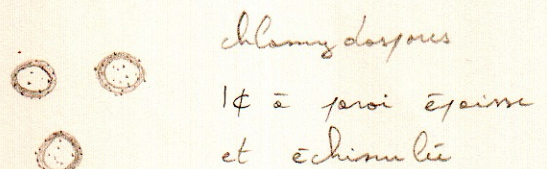 chlamydospores
1¢ à paroi épaisse
et échinulée